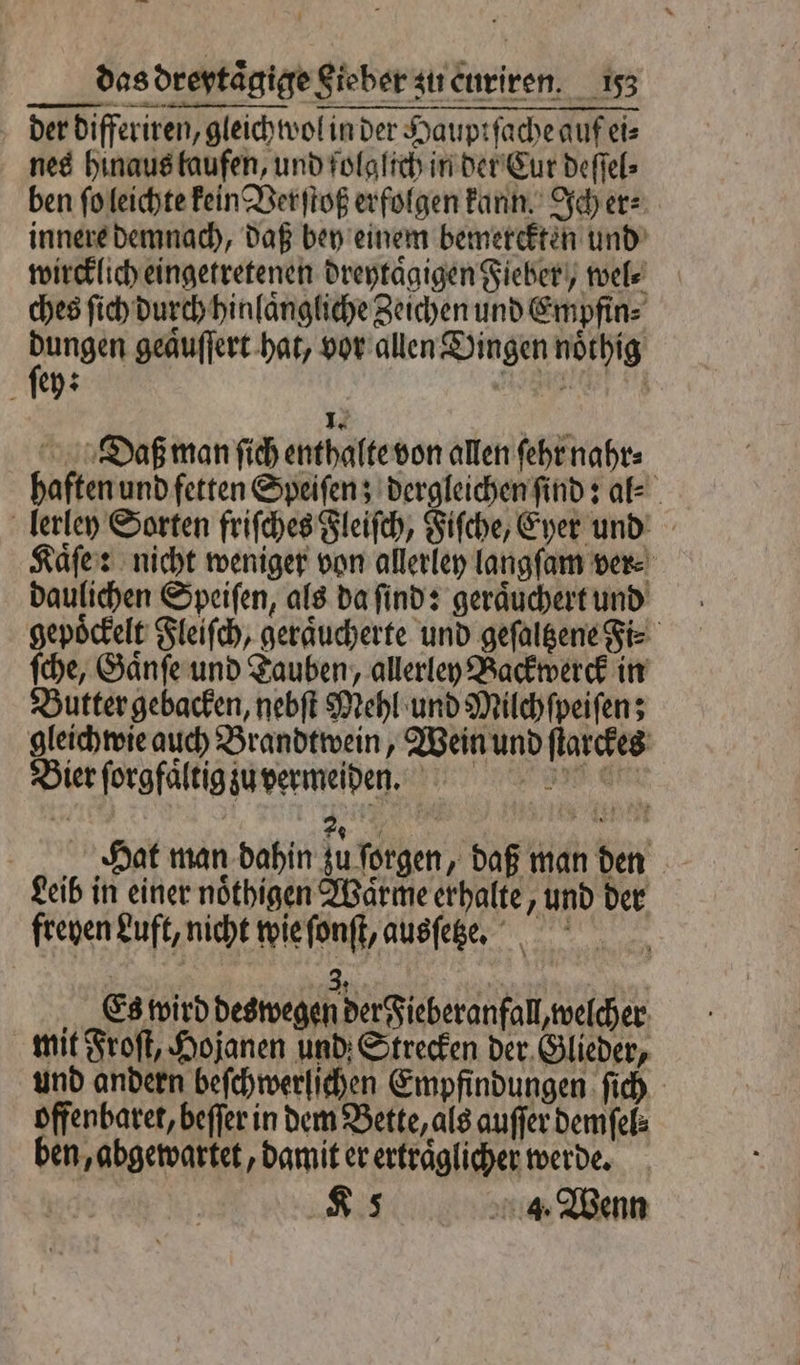 das dreytaͤgige Fieber zu curiren. 153
der differiren, gleichwol in der Hauptſache auf ei⸗
nes hinaus laufen, und folglich in der Cur deſſel⸗
ben ſo leichte kein Verſtoß erfolgen kann. Ich er⸗
innere demnach, daß bey einem bemerckten und
wircklich eingetretenen dreytaͤgigen Fieber, wel⸗
ches ſich durch hinlaͤngliche Zeichen und Empfin⸗
dungen geaͤuſſert hat, vor allen Dingen noͤthig
ſey:
1.
Daß man ſich enthalte von allen ſehr nahr⸗
haften und fetten Speiſen; dergleichen ſind: al⸗
lerley Sorten friſches Fleiſch, Fiſche, Eyer und
Kaͤſe: nicht weniger von allerley langſam ver⸗
daulichen Speiſen, als da ſind: geraͤuchert und
gepoͤckelt Fleiſch, geraͤucherte und geſaltzene Fi⸗
ſche, Gaͤnſe und Tauben, allerley Backwerck in
Butter gebacken, nebſt Mehl und Milchſpeiſen;
gleichwie auch Brandtwein, Wein und ſtarckes
Bier ſorgfaͤltig zu vermeiden.
2.
Hat man dahin zu ſorgen, daß man den
Leib in einer noͤthigen Waͤrme erhalte, und der
freyen Luft, nicht wie ſonſt, ausſetze.
3.
Es wird deswegen der Fieberanfall, welcher
mit Froſt, Hojanen und Strecken der Glieder,
und andern beſchwerlichen Empfindungen ſich
offenbaret, beſſer in dem Bette, als auſſer demſel⸗
ben, abgewartet, damit er ertraͤglicher werde.
K 5 4. Wenn